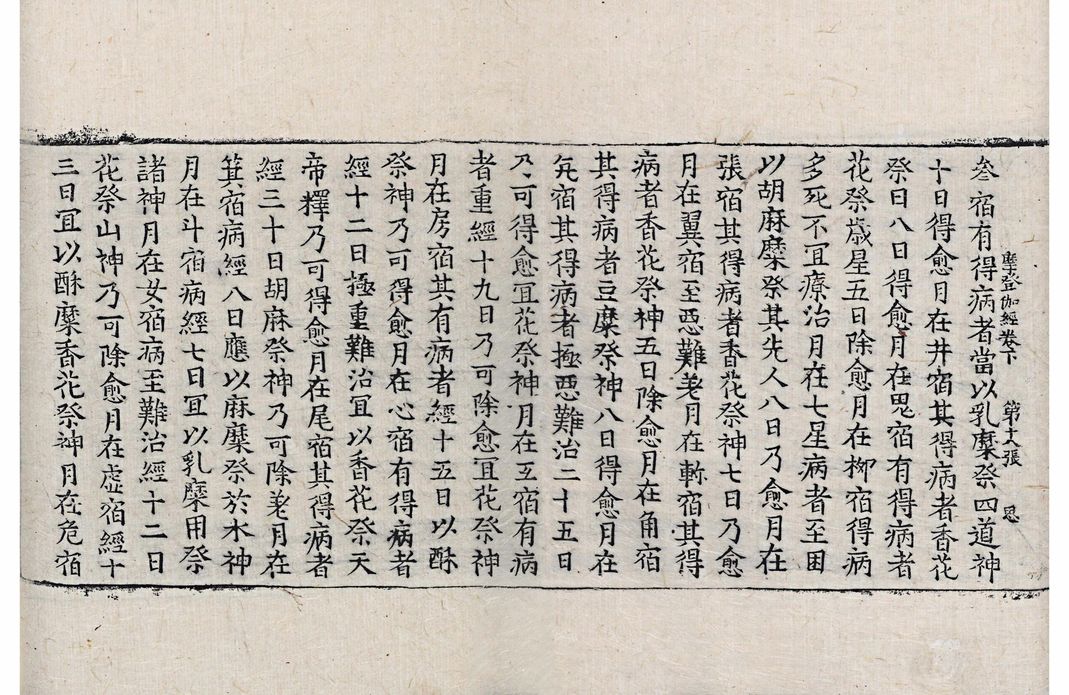 摩登伽經卷下 第十六張 恩
叅宿有得病者當以乳糜祭四道神
十日得愈月在井宿其得病者香花
祭日八日得愈月在鬼宿有得病者
花祭歲星五日除愈月在柳宿得病
多死不冝療治月在七星病者至困
以胡麻糜祭其先人八日乃愈月在
張宿其得病者香花祭神七日乃愈
月在翼宿至惡難差月在軫宿其得
病者香花祭神五日除愈月在角宿
其得病者豆糜祭神八日得愈月在
亢宿其得病者極惡難治二十五日
乃可得愈冝花祭神月在互宿有病
者重經十九日乃可除愈冝花祭神
月在房宿其有病者經十五日以酥
祭神乃可得愈月在心宿有得病者
經十二日極重難治冝以香花祭天
帝釋乃可得愈月在尾宿其得病者
經三十日胡麻祭神乃可除差月在
箕宿病經八日應以麻糜祭於水神
月在斗宿病經七日冝以乳糜用祭
諸神月在女宿病至難治經十二日
花祭山神乃可除愈月在虛宿經十
三日冝以酥糜香花祭神月在危宿